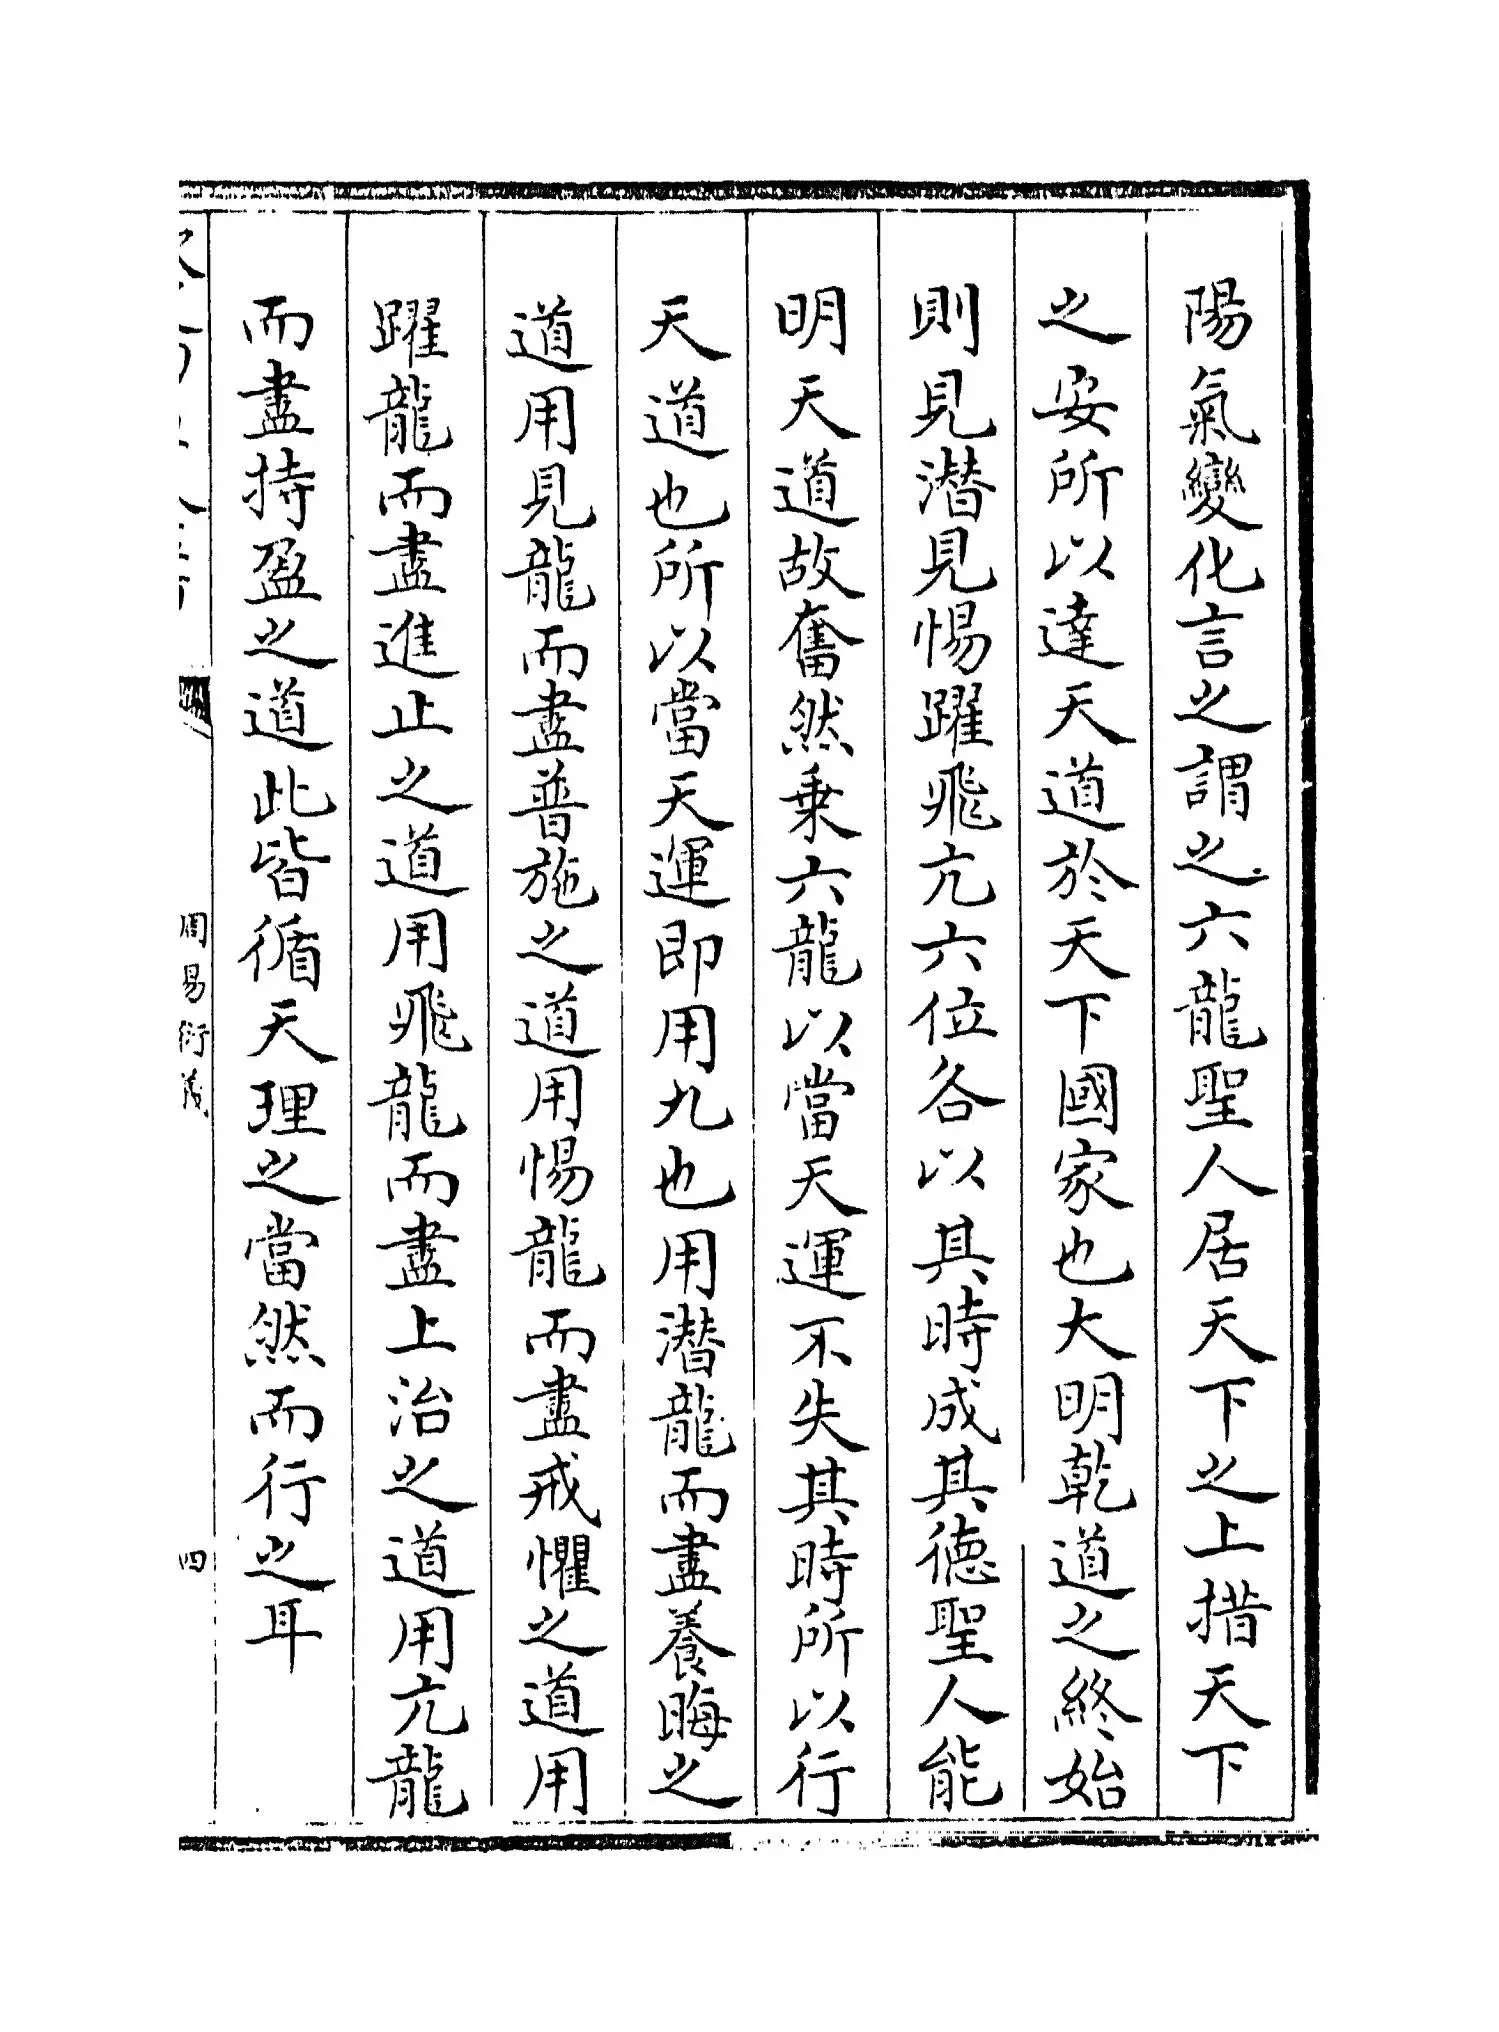 陽氣變化言之謂之六龍聖人居天下之上措天下
之安所以達天道於天下國家也大明乾道之終始
則見潛見惕躍飛亢六位各以其時成其德聖人能
明天道故奮然乗六龍以當天運不失其時所以行
天道也所以當天運即用九也用潛龍而盡養晦之
道用見龍而盡普施之道用惕龍而盡戒懼之道用
躍龍而盡進止之道用飛龍而盡上治之道用亢龍
而盡持盈之道此皆循天理之當然而行之耳
周易衍義
四